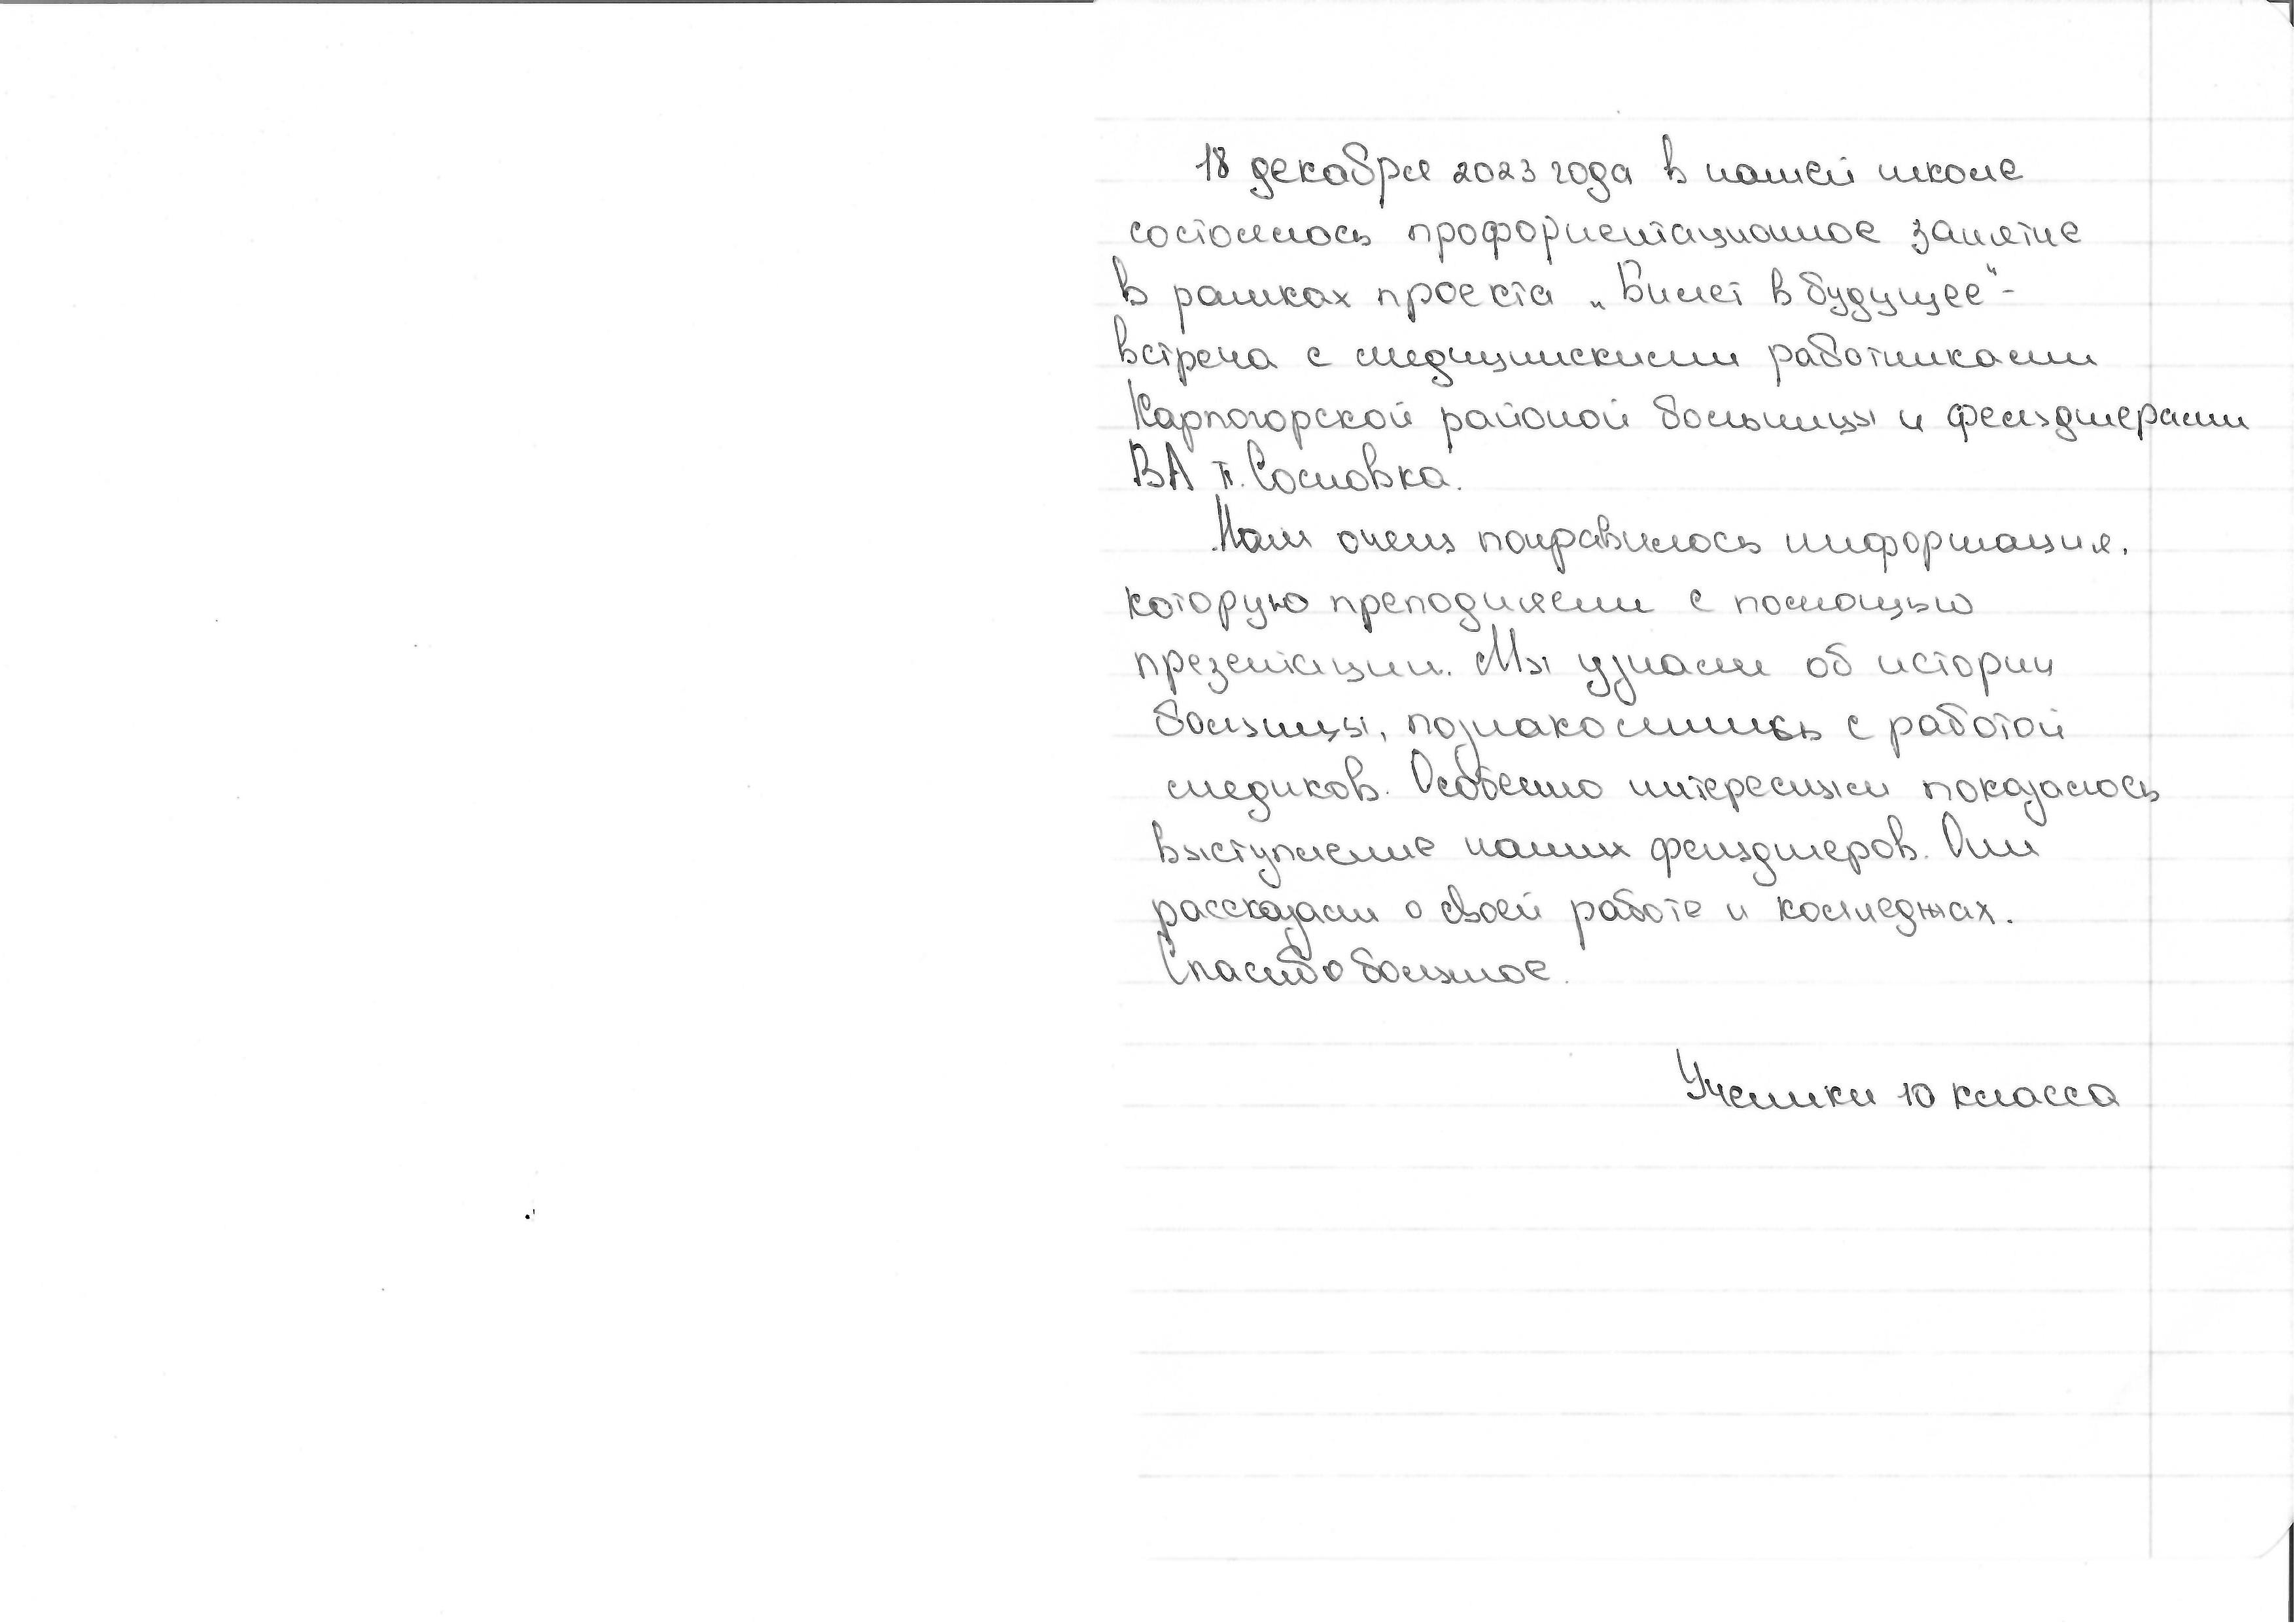 18 декабря 2023 года в нашей школе
состоялось профориентационное занятие
в рамках проекта „Билет в будущее“ -
встреча с медицинскими работниками
Карпогорской районой больницы и фельдшерами
ВА п. Сосновка.
Нам очень понравилось информация,
которую преподнесли с помощью
презентации. Мы узнали об истории
больницы, познакомились с работой
медиков. Особенно интересным показалось
выступление наших фельдшеров. Они
рассказали о своей работе и колледжах.
Спасибо большое.
Ученики 10 класса